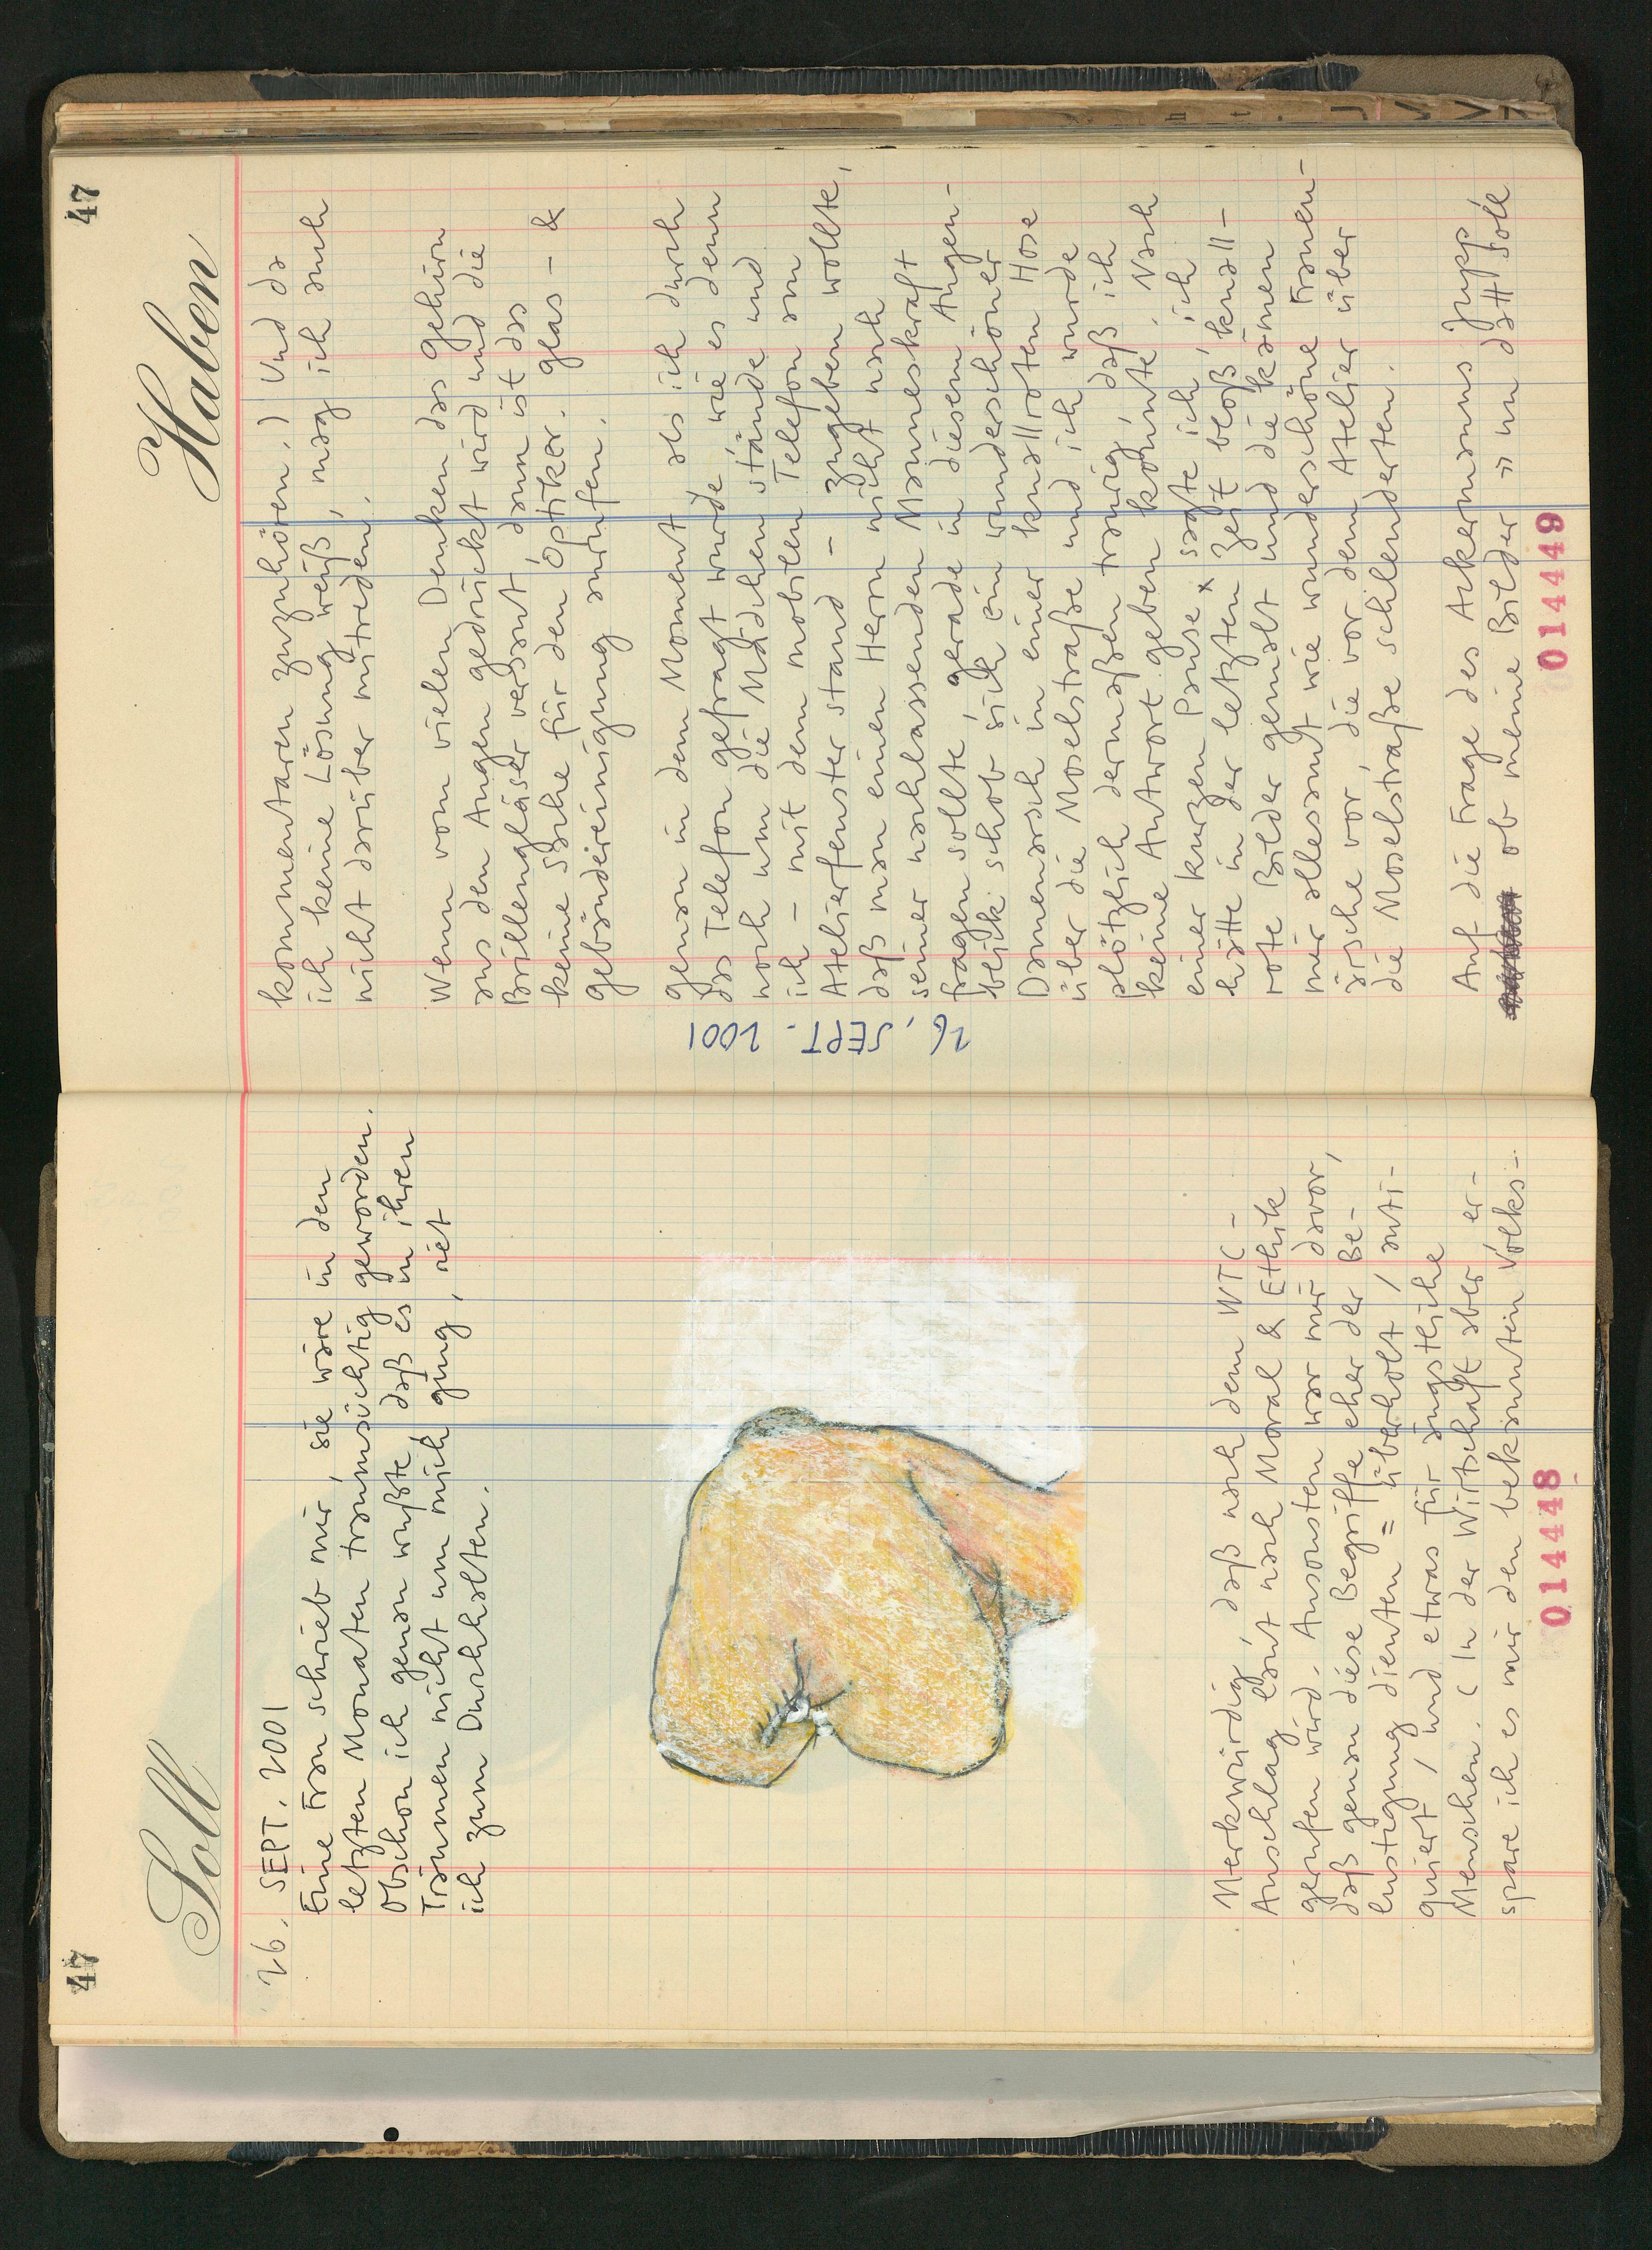 47
Soll
26. SEPT. 2001
Eine Frau schrieb mir, sie wäre in den
letzten Monaten traumsüchtig geworden.
Obschon ich genau wußte, daß es in ihren
Träumen nicht um mich ging, riet
ich zum Durchhalten.
Merkwürdig, daß nach dem WTC-
Anschlag laut nach Moral & Ethik
gerufen wird. Ansonsten war mir davor,
daß genau diese Begriffe eher der Be-
lustigung dienten = überholt / anti-
quiert / und etwas für ängstliche
Menschen. (In der Wirtschaft aber er-
spare ich es mir den bekannten Volks-
014448
47
Haben
kommentaren zuzuhören.) Und da
ich keine Lösung weiß, mag ich auch
nicht darüber mitreden.
Wenn vom vielen Denken das Gehirn
aus den Augen gedrückt wird und die
Brillengläser versaut, dann ist das
keine Sache für den Optiker. Glas- &
Gebäudereinigung anrufen.
26. SEPT. 2001
Genau in dem Moment als ich durch
das Telefon gefragt wurde, wie es denn
noch um die Mädchen stände und
ich - mit dem mobilen Telefon am
Atelierfenster stand - zugeben wollte,
daß man einen Herrn nicht nach
seiner nachlassenden Manneskraft
fragen sollte, gerade in diesem Augen-
blick schob sich ein wunderschöner
Damenarsch in einer knallroten Hose
über die Moselstraße und ich wurde
plötzlich dermaßen traurig, daß ich
keine Antwort geben konnte. Nach
einer kurzen Pause x sagte ich, ich
hätte in der letzten Zeit bloß knall-
rote Bilder gemalt und die kämen
mir allesamt wie wunderschöne Frauen-
ärsche vor, die vor dem Atelier über
die Moselstraße schlenderten.
Auf die Frage des Ackermanns Jupp,
ob meine Bilder "un datt soll
014449